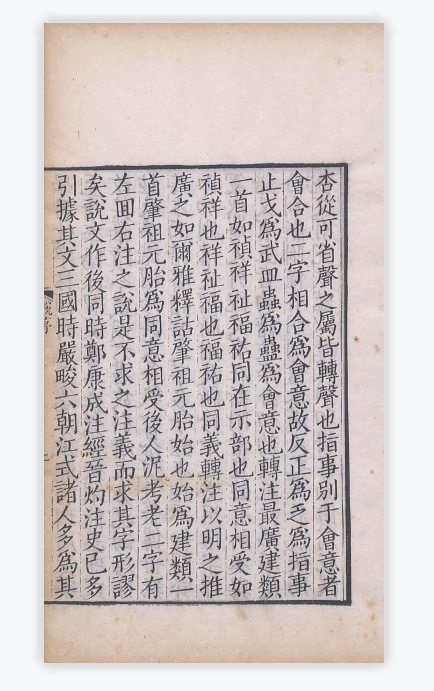 杏從可省聲之屬皆轉聲也指事別于會意者
會合也二字相合爲會意故反正爲乏爲指事
止戈爲武皿蟲爲蠱爲會意也轉注最廣建類
一首如禎祥祉福祐同在示部也同意相受如
禎祥也祥祉福也福祐也同義轉注以明之推
廣之如爾雅釋詁肇祖元胎始也始爲建類一
首肇祖元胎爲同意相受後人泥考老二字有
左回右注之說是不求之注義而求其字形謬
矣說文作後同時鄭康成注經晉灼注史已多
引據其文三國時嚴畯六朝江式諸人多爲其